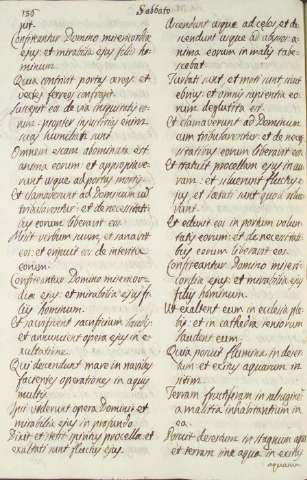 130
Sabbato
pit.
Confiteantur Domino misericordiæ
ejus: et mirabilia ejus filiis ho-
minum.
Quia contrivit portas æreas: et
vectes ferreos confregit.
Suscepit eos de via iniquitatis eo-
rum: propter injustitias enim
suas humiliati sunt
Omnem escam abominata est
anima eorum: et appropinqua-
verunt usque ad portas mortis.
Et clamaverunt ad Dominum cum
tribularentur: et de necessitati-
bus eorum liberavit eos.
Misit verbum suum, et sanavit
eos: et eripuit eos de interitio-
eorum.
Confiteantur Domino misericor-
diæ ejus: et mirabilia ejus fi-
liis hominum.
Et sacrificent sacrificium laudis:
et annuncient opera ejus in e-
xultatione.
Qui descendunt mare in navibus
facientes operationes in aquis
multis.
Ipsi viderunt opera Domini: et
mirabilia ejus in profundo.
Dixit et stetit spiritus procellæ: et
exaltati sunt fluctus ejus.
Ascendunt usque ad cœlos, et de-
scendunt usque ad abyssos: a-
nima eorum in malis tabe-
scebat
Turbati sunt, et moti sunt sicut
ebrius: et omnis sapientia eo-
rum deglutita est.
Et clamaverunt ad Dominum
cum tribularentur: et de neces-
sitatibus eorum liberavit eos.
Et statuit procellam ejus in au-
ram: et siluerunt fluctus e-
jus, et lætati sunt quia silue-
runt.
Et eduxit eos in portum volun-
tatis eorum: et de necessita-
tibus eorum liberavit eos.
Confiteantur Domino miseri-
cordiæ ejus: et mirabilia ejus
filiis hominum.
Ut exaltent eum in ecclesia ple-
bis: et in cathedra seniorum
laudent eum.
Quia posuit flumina in deser-
tum: et exitus aquarum in
sitim.
Terram fructiferam in salsuginem
a malitia inhabitantium in
ea.
Posuit desertum in stagnum aqua
et terram sine aqua in exitus
aquarum